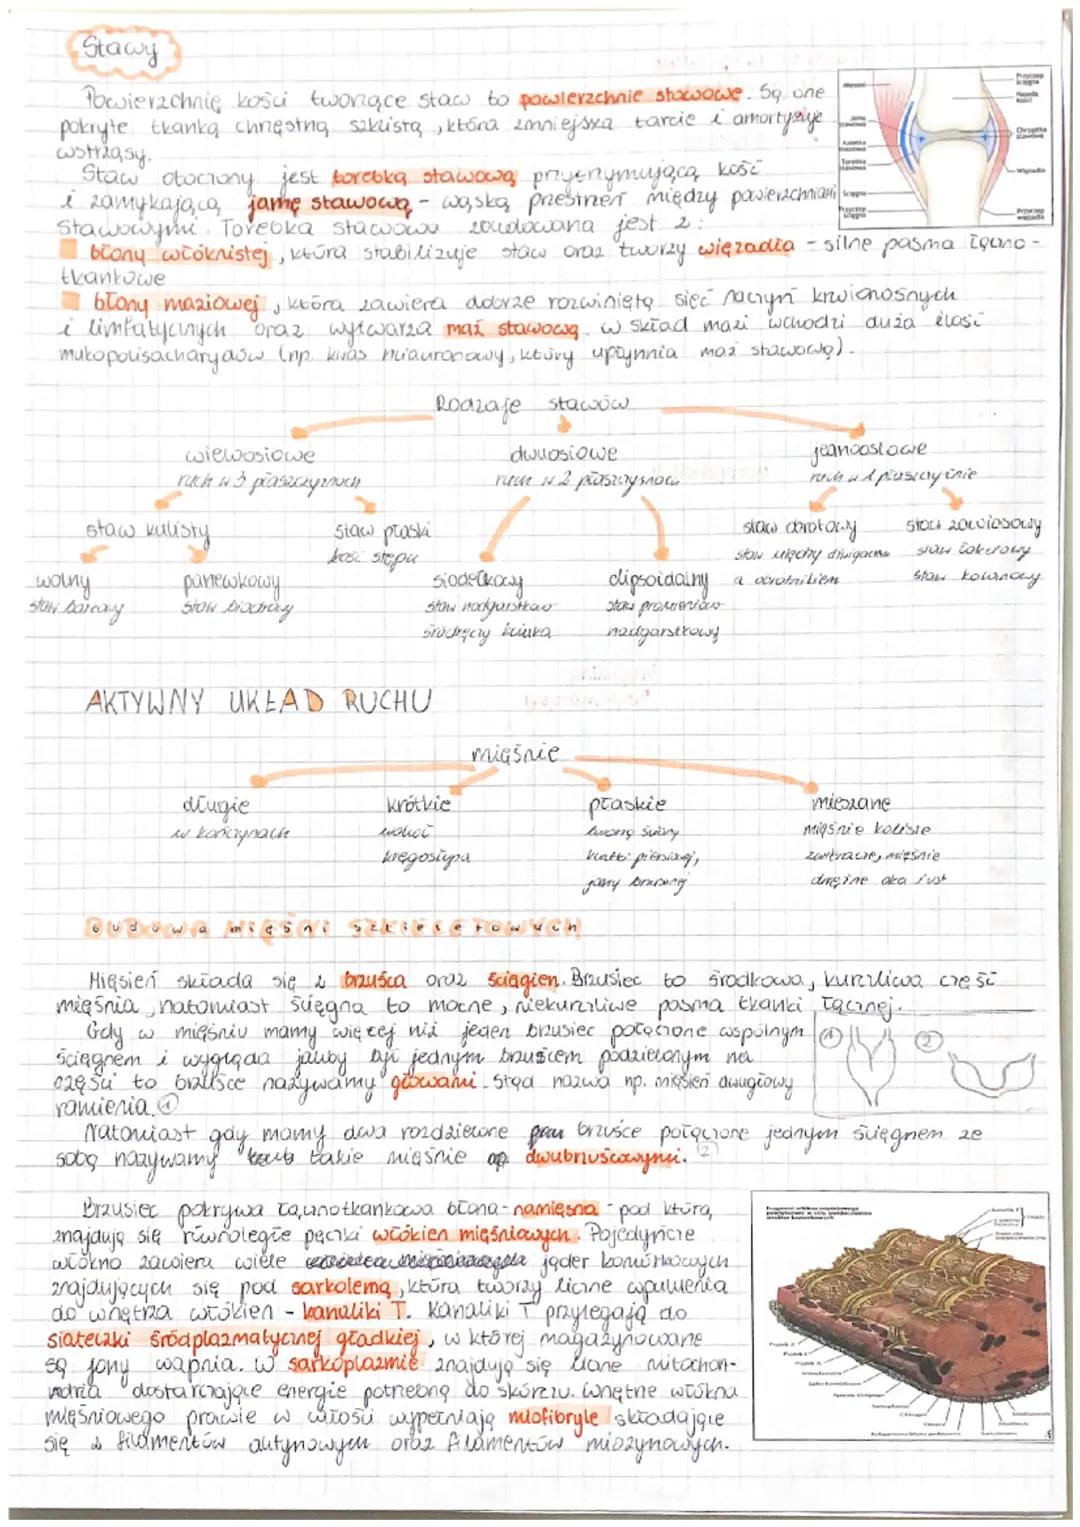 Stawy
Powierzchnię kości tworzące staw to powierzchnie stawowe. Są one
pokryte tkanką chrzęstną szklistą, która zmniejsza tarcie i amortyzuje
wstrząsy.
Staw otoczony jest torebką stawową przytrzymującą kość
i zamykającą jamę stawową - wąską przestrzeń między powierzchniami
stawowymi. Torebka stawowa zbudowana jest z:
błony włóknistej, która stabilizuje staw oraz tworzy więzadła - silne pasma łączno-
tkankowe
błony maziowej, która zawiera dobrze rozwiniętą sieć naczyń krwionośnych
i limfatycznych oraz wytwarza maź stawową. w skład mazi wchodzi duża ilość
mukopolisacharydów (np. kwas hialuronowy, który upłynnia maź stawową).
Mięsień
Jama stawowa
Kaletka maziowa
Torebka stawowa
Ścięgno
Przyczep ścięgna
Przyczep ścięgna
Chrząstka stawowa
Więzadło
Przyczep więzadła
Rodzaje stawów
wieloosiowe
ruch w 3 płaszczyznach
dwuosiowe
ruch w 2 płaszczyznach
jednoosiowe
ruch w 1 płaszczyźnie
staw kulisty
staw płaski
kości stępu
staw obrotowy
staw między dźwigaczem
a obrotnikiem
staw zawiasowy
staw łokciowy
staw kolanowy
wolny
staw barkowy
panewkowy
staw biodrowy
siodełkowy
staw nadgarstkowo
śródręczny kciuka
elipsoidalny
staw promieniowo
nadgarstkowy
AKTYWNY UKŁAD RUCHU
mięśnie
długie
w kończynach
krótkie
wokół
kręgosłupa
płaskie
tworzą ściany
klatki piersiowej,
jamy brzusznej
mieszane
mięśnie koliste
zwieracze, mięśnie
okrężne oka i ust
budowa mięśni szkieletowych
Mięsień składa się z brzuśca oraz ścięgien. Brzusiec to środkowa, kurczliwa część
mięśnia, natomiast ścięgna to mocne, niekurczliwe pasma tkanki łącznej.
Gdy w mięśniu mamy więcej niż jeden brzusiec połączone wspólnym
ścięgnem i wygląda jakby był jednym brzuścem podzielonym na
części to brzuśce nazywamy głowami. Stąd nazwa np. mięsień dwugłowy
ramienia. ①
① ②
Natomiast gdy mamy dwa rozdzielone brzuśce połączone jednym ścięgnem ze
sobą nazywamy takie mięśnie dwubrzuścowymi. ②
Brzusiec pokrywa łącznotkankowa błona - namięsna - pod którą
znajdują się równoległe pęczki włókien mięśniowych. Pojedyncze
włókno zawiera wiele jąder komórkowych
znajdujących się pod sarkolemą, która tworzy liczne wpuklenia
do wnętrza włókien - kanaliki T. Kanaliki T przylegają do
siateczki śródplazmatycznej gładkiej, w której magazynowane
są jony wapnia. W sarkoplazmie znajdują się liczne mitochon-
ndria dostarczające energie potrzebną do skurczu. Wnętrze włókna
mięśniowego prawie w całości wypełniają miofibryle składające
się z filamentów aktynowych oraz filamentów miozynowych.